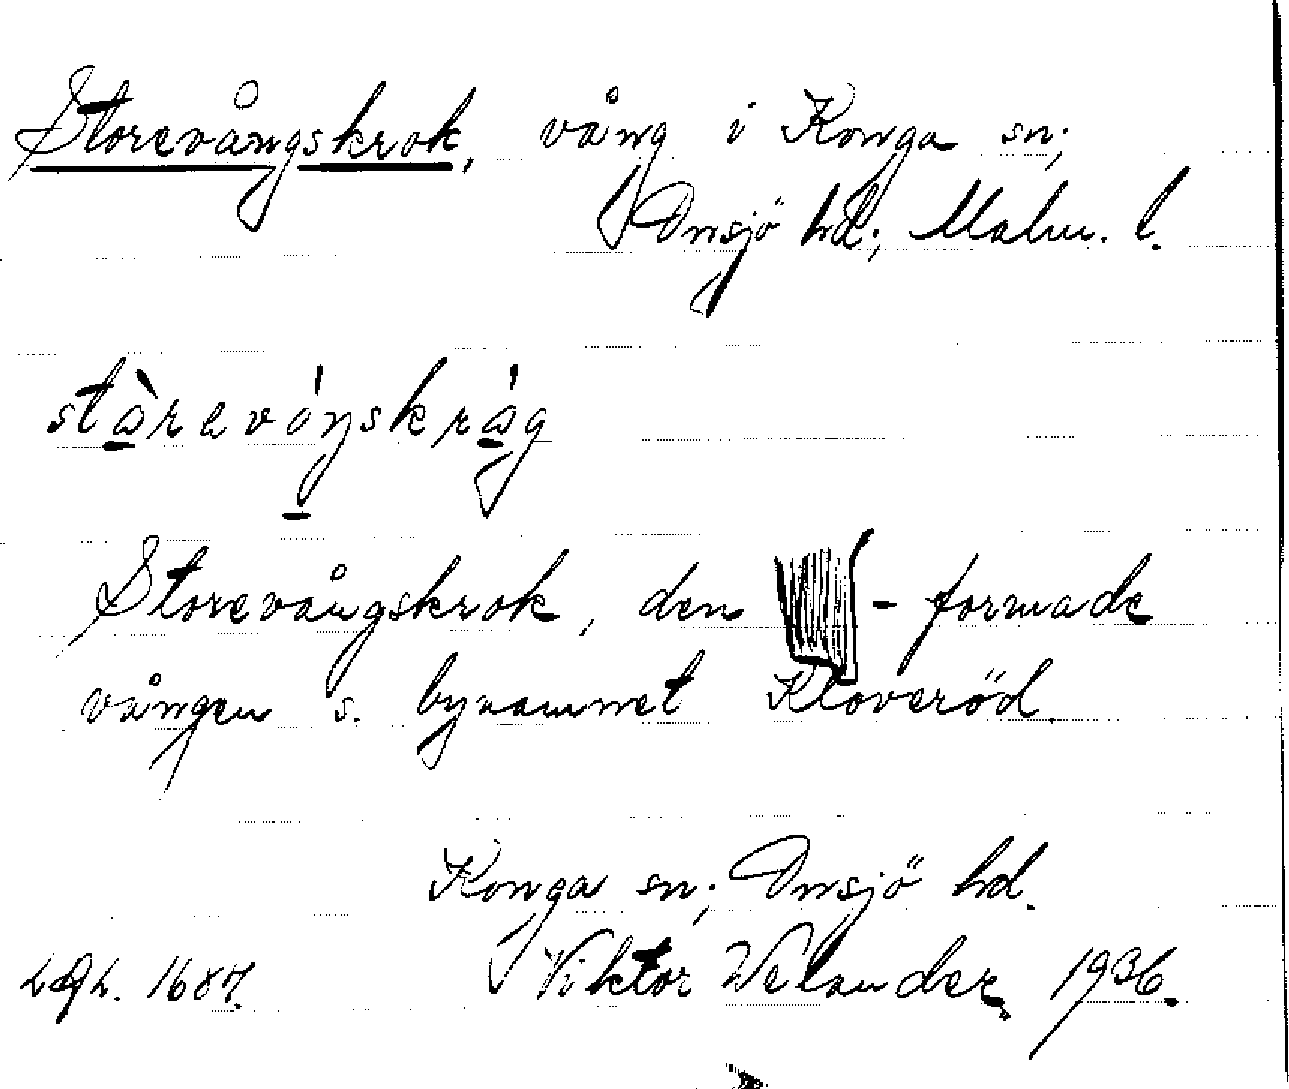 Storevångskrok, vång i Konga sn;
Onsjö hd; Malm. l.
stàreváŋskrág
Storevångskrok, den - formade
vången s. bynamnet Kloveröd.
Konga sn; Onsjö hd.
1687. Viktor Welander, 1936.